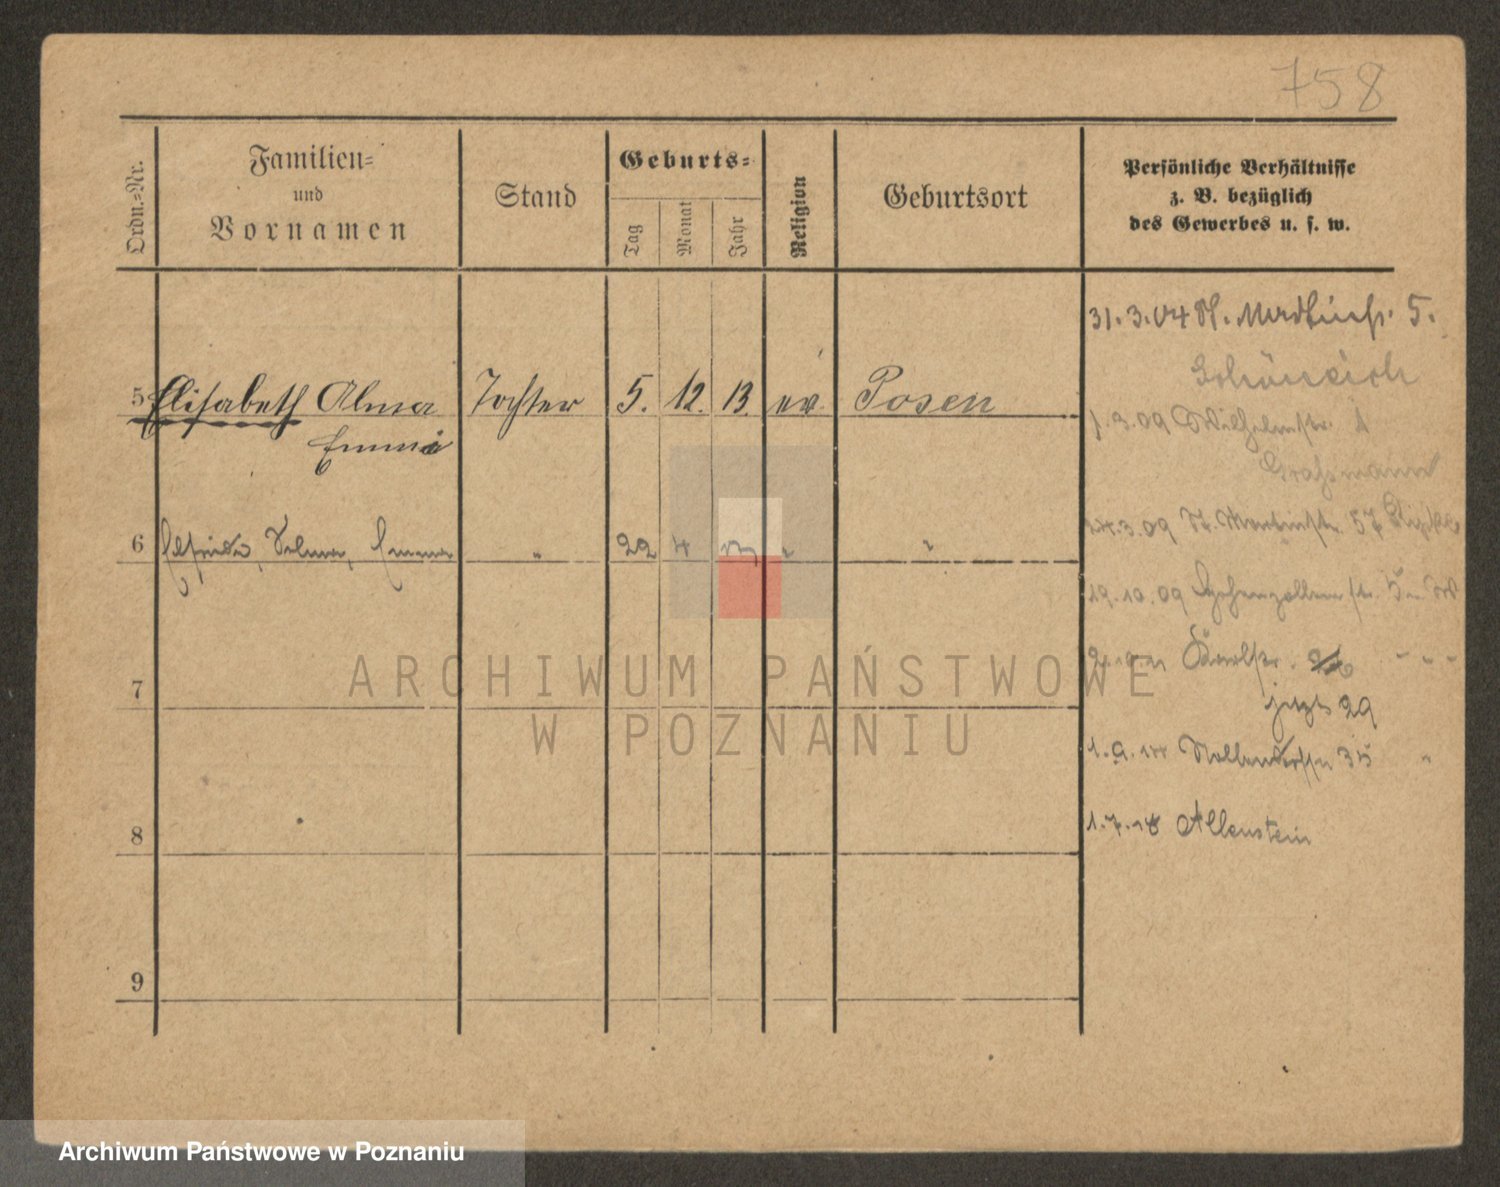 758
Ordn.-Nr.
Familien-
und
Vornamen
Stand
Geburts-
Tag
Monat
Jahr
Religion
Geburtsort
Persönliche Verhältnisse
z. B. bezüglich
des Gewerbes u. s. w.
31.3.04 St. Martinstr. 5.
Schöneich
5 Elisabeth Alma Tochter 5. 12. 13. ev. Posen
Emma
1.3.09 Wilhelmstr. 1
Graßmann
6 Elfriede, Selma, Emma " 22 4 " "
24.3.09 St. Martinstr. 57
29.10.09 Hohenzollernstr. 5
Karlstr. 26
7
jetzt 29
1.9. Nollendorfstr 35 "
8
1.7.18 Allenstein
9
ARCHIWUM PAŃSTWOWE
W POZNANIU
Archiwum Państwowe w Poznaniu